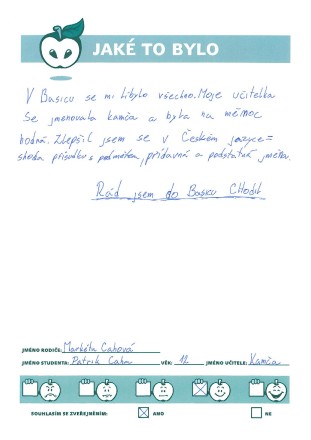 JAKÉ TO BYLO
V Basicu se mi líbylo všechno. Moje učitelka
se jmenovala Kamča a byla na mě moc
hodná. Zlepšil jsem se v Českém jazyce =
shoda přísudku s podmětem, přídavná a podstatná jména.
Rád jsem do Basicu CHodil
JMÉNO RODIČE: Markéta Cahová
JMÉNO STUDENTA: Patrik Cahn VĚK: 12 JMÉNO UČITELE: Kamča
SOUHLASÍM SE ZVEŘEJNĚNÍM: ANO NE